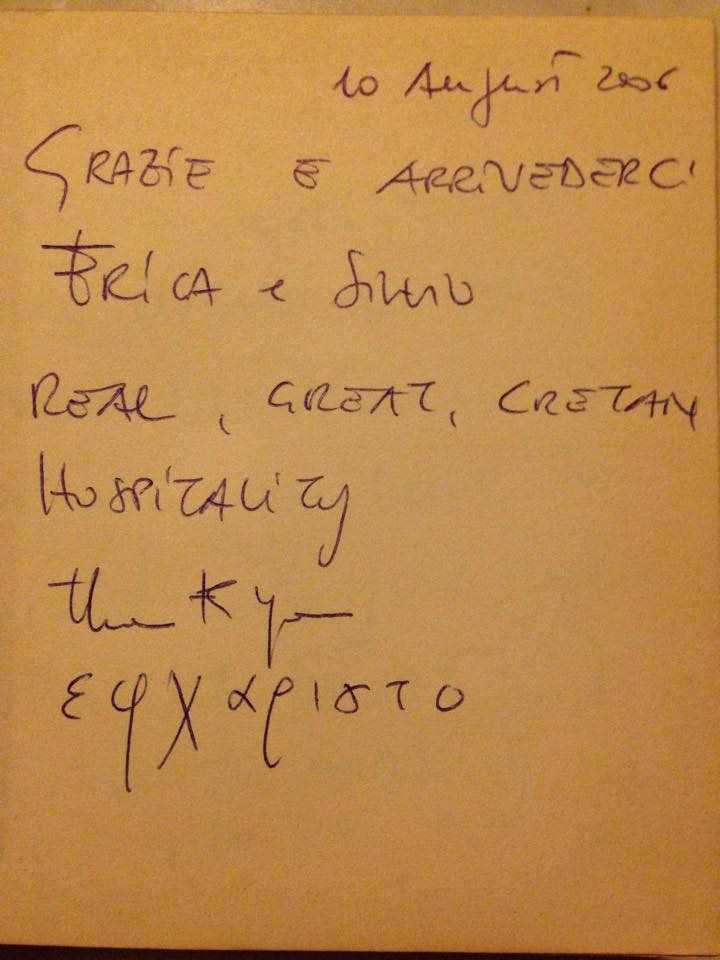 10 August 2006
GRAZIE E ARRIVEDERCI
ERICA e Silvio
REAL, GREAT, CRETAN
HOSPITALITY
thank you
εφχαριστο